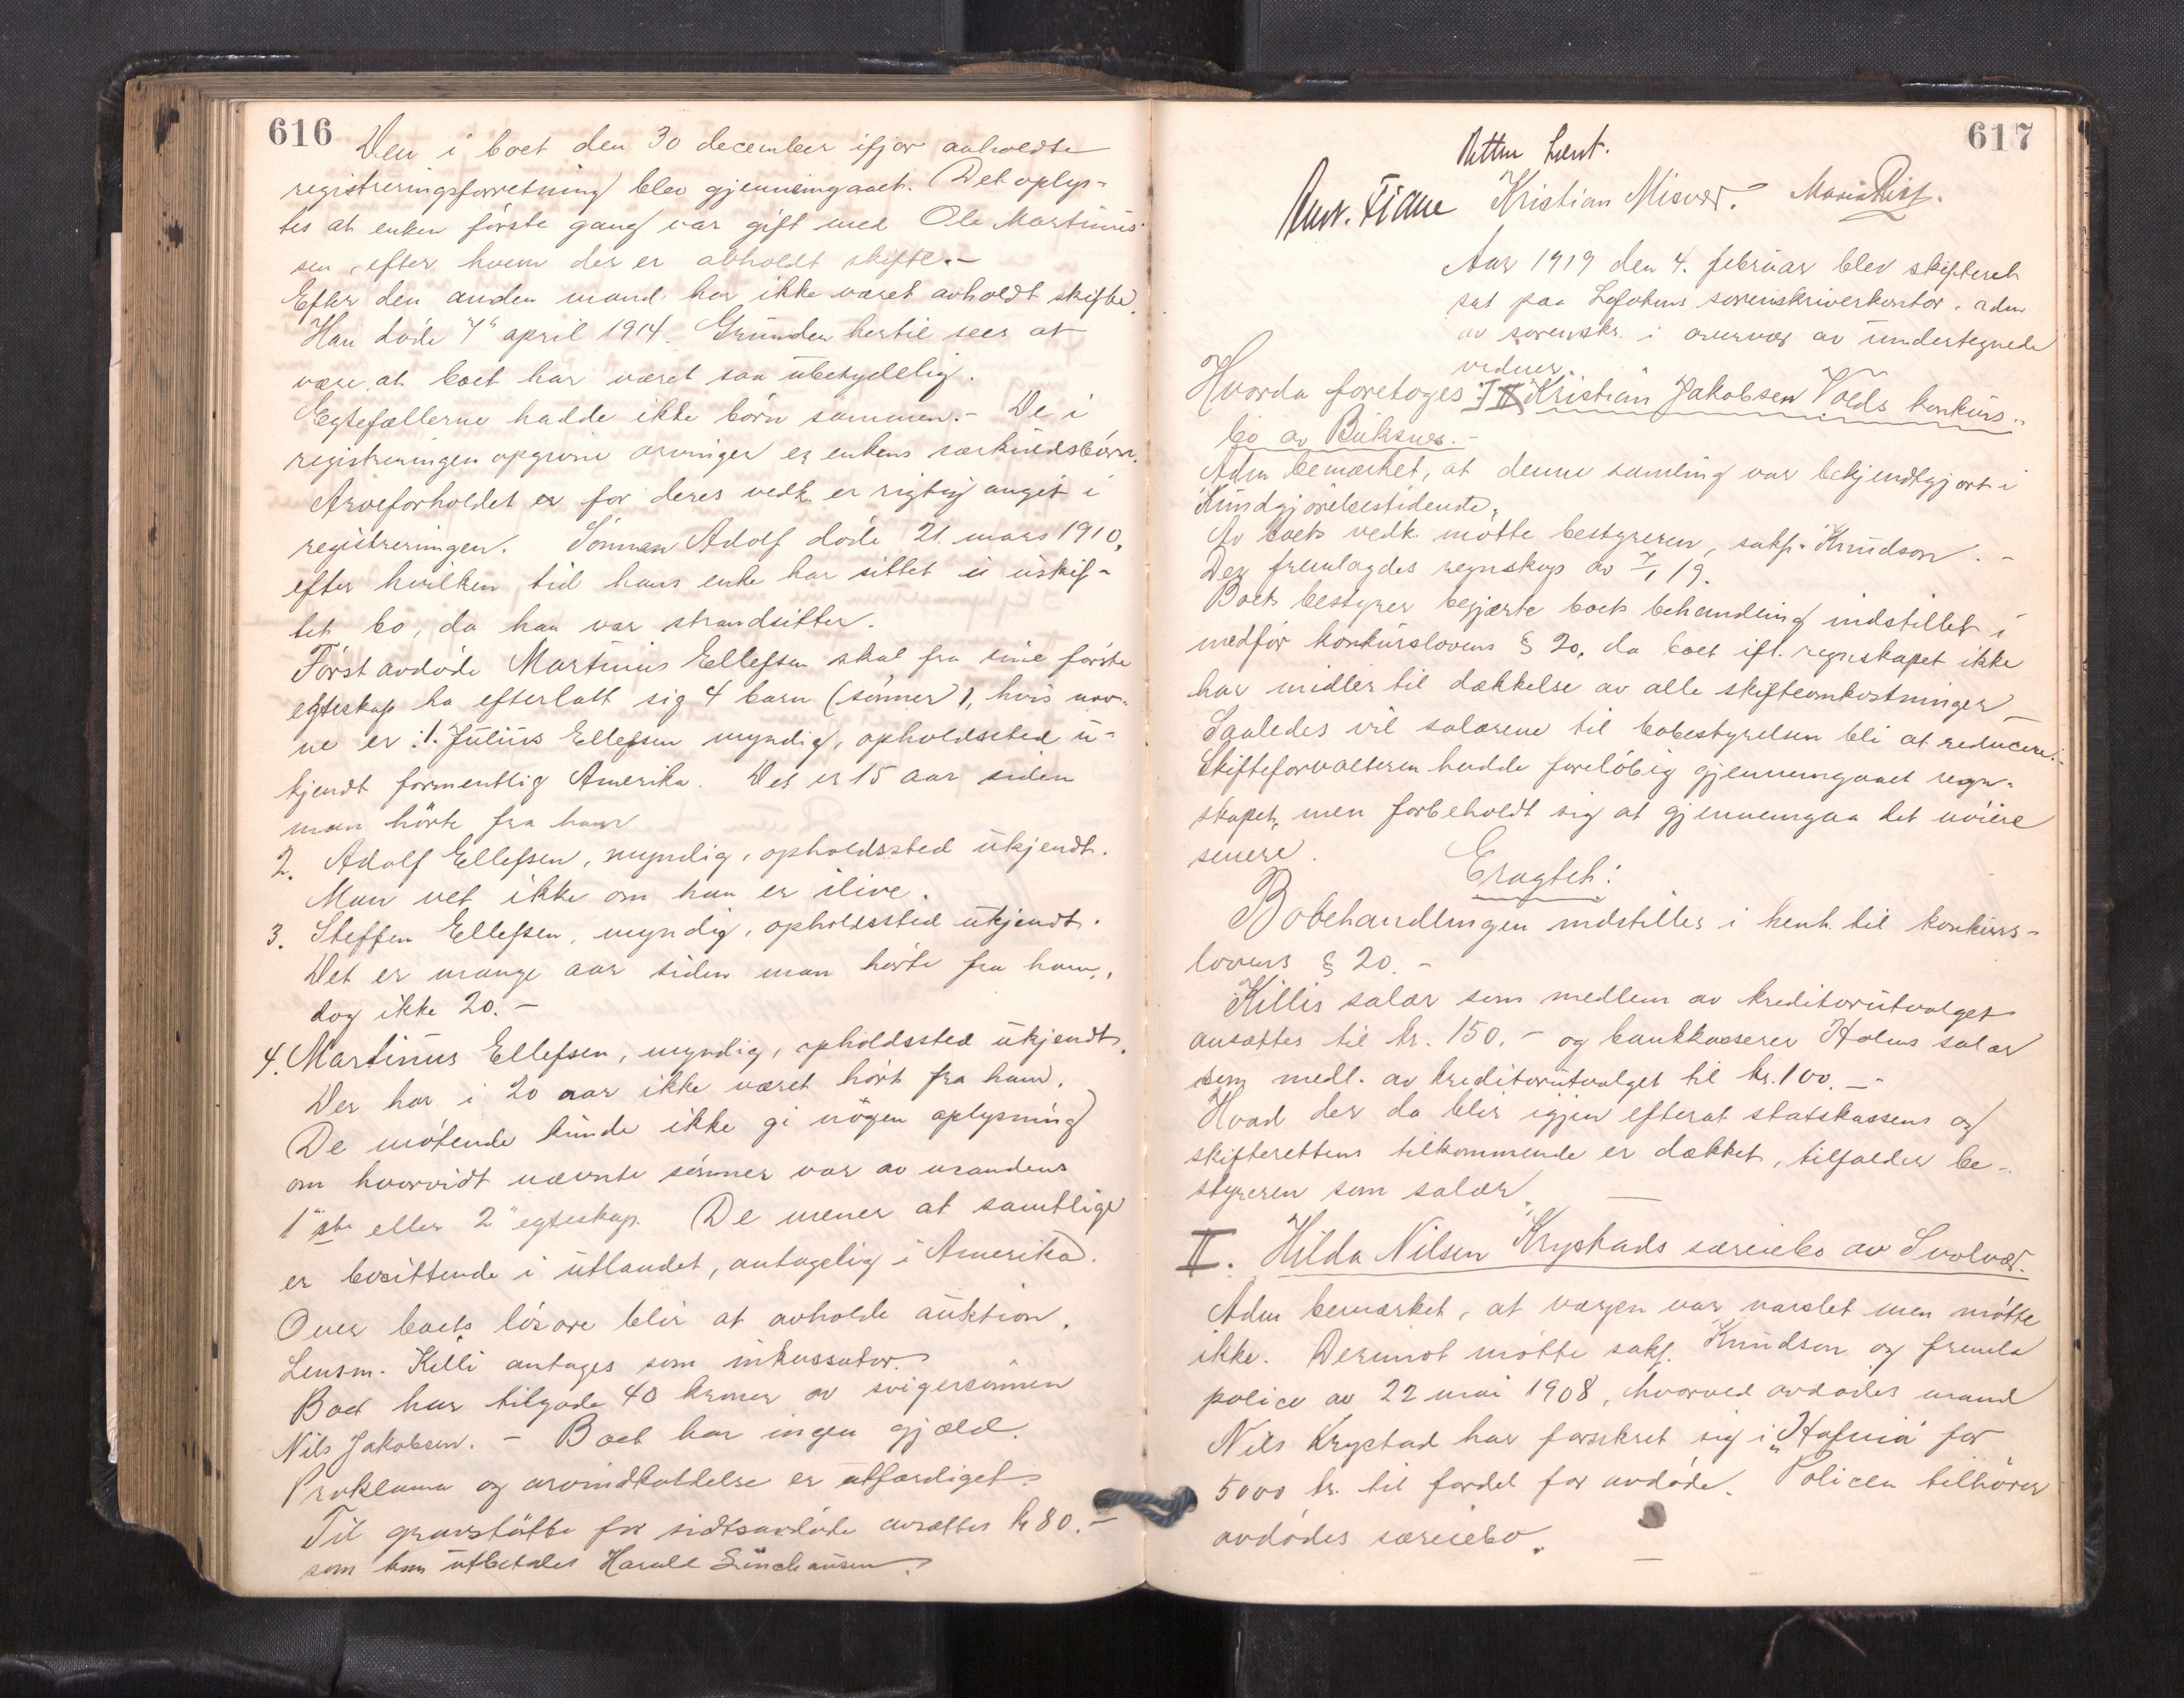 616
Den i boet den 30 december ifjor avholdte
registreringsforretning blev gjennemgaaet. Det oplys-
tes at enken første gang var gift med Ole Martinus-
sen, efter hvem der er avholdt skifte.-
Efter den anden mand har ikke været avholdt skifte.
Han døde 7" april 1914. Grunden hertil sees at
være at boet har været saa ubetydelig.
Egtefællerne hadde ikke børn sammen.- De i
registreringen opgivne arvinger er enkens særkuldsbørn.
Arveforholdet er for deres vedk. er rigtig angit i
registreringen. Sønnen Adolf døde 21. mars 1910,
efter hvilken tid hans enke har sittet i uskif-
tet bo, da han var strandsitter.
Først avdøde Martinus Ellefsen skal fra sine første
egteskap ha efterlatt sig 4 barn (sønner), hvis nav-
ne er: 1. Julius Ellefsen myndig, opholdssted u-
kjendt formentlig Amerika. Det er 15 aar siden
man hørte fra ham
2. Adolf Ellefsen, myndig, opholdssted ukjendt.
Man vet ikke om han er ilive.
3. Steffen Ellefsen, myndig, opholdssted ukjendt.
Det er mange aar siden man hørte fra ham,
dog ikke 20.-
4. Martinus Ellefsen, myndig, opholdssted ukjendt.
Der har i 20 aar ikke været hørt fra ham.
De møtende kunde ikke gi nogen oplysning
om hvorvidt nævnte sønner var av mandens
1"ste eller 2" egteskap. De mener at samtlige
er bosittende i utlandet, antagelig i Amerika.
Over boets løsøre blir at avholde auktion.
Lensm. Killi antages som inkassator.
Boet har tilgode 40 kroner av svigersønnen
Nils Jakobsen. - Boet har ingen gjæld.
Proklama og arvindkaldelse er utfærdiget.
Til gravstøtte for sidstavdøde avsættes kr 80.-
som kan utbetales Harald
617
Retten hævt.
Kristian Misvær. Maria
Aar 1919 den 4. februar blev skifteret
sat paa Lofotens sorenskriverkontor. adm
av sorenskr. i overvær av undertegnede
vidner.
Hvorda foretoges: I Kristian Jakobsen Volds konkurs-
bo av Buksnes.-
Adm bemærket, at denne samling var bekjendtgjort i
Kundgjørelsestidende.
Av boets vedk. møtte bestyreren, sakf. Knudson.-
Der fremlagdes regnskap av 7/1 19.
Boets bestyrer begjærte boets behandling indstillet i
medfør konkurslovens § 20, da boet ifl. regnskapet ikke
har midler til dækkelse av alle skifteomkostninger_
Saaledes vil salærene til bobestyrelsen bli at reducere.-
Skifteforvalteren hadde foreløbig gjennemgaaet regn-
skapet, men forbeholdt sig at gjennemgaa det nøiere
senere.
Eragtet:
Bobehandlingen indstilles i henh. til konkurs-
lovens § 20.-
Killis salær som medlem av kreditorutvalget
ansættes til kr. 150.- og bankkasserer Holms salær
som medl. av kreditorutvalget til kr. 100.-
Hvad der da blir igjen efterat statskassens og
skifterettens tilkommende er dækket, tilfalder be-
styreren som salær. _
II. Hilda Nilsen Krystads særeiebo av Svolvær.
Adm bemærket, at værgen var varslet men møtte
ikke. Derimot møtte sakf. Knudson og fremla
police av 22 mai 1908, hvorved avdødes mand
Nils Krystad har forsikret sig i "Hafnia" for
5000 kr. til fordel for avdøde. Policen tilhører
avdødes særeiebo.